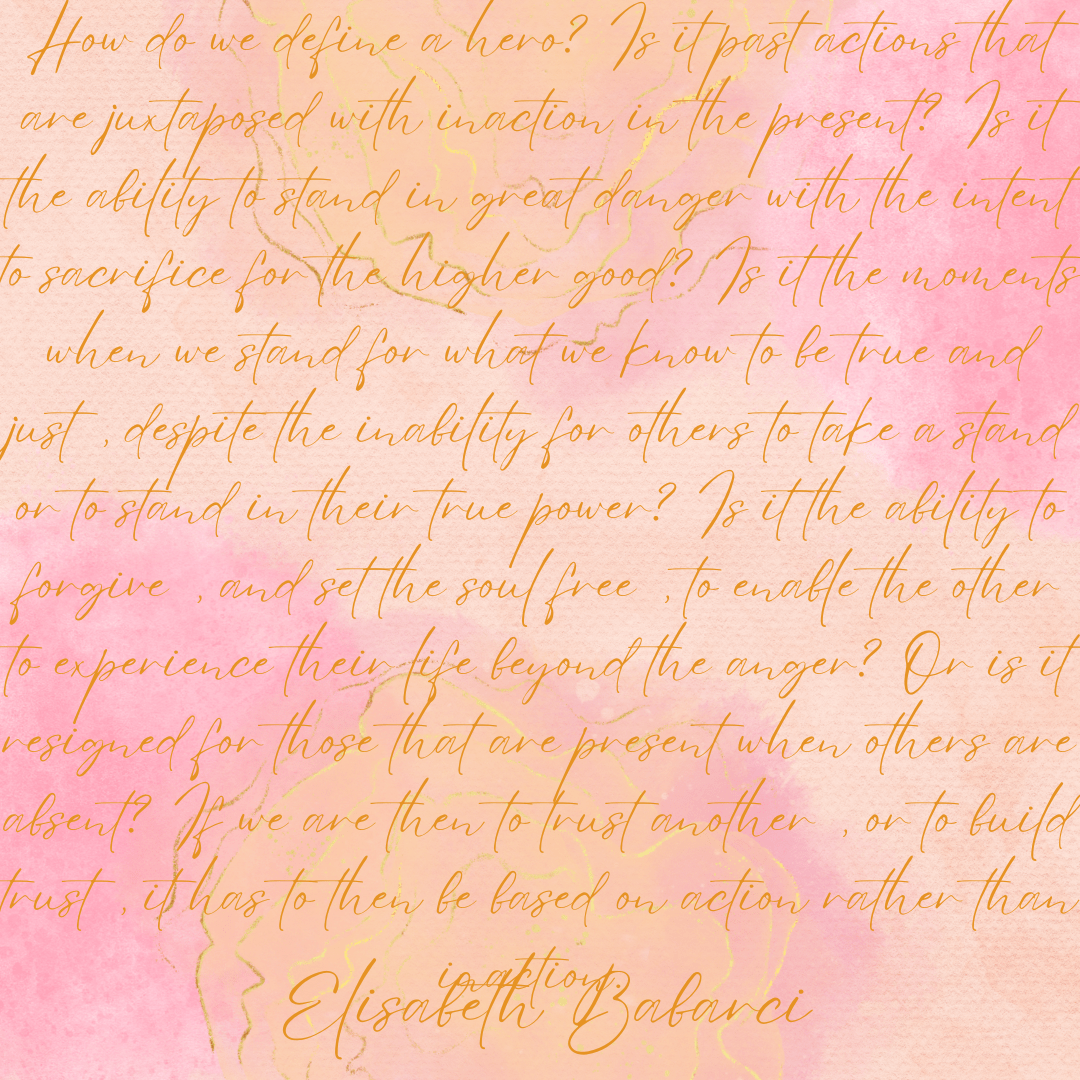 How do we define a hero? Is it past actions that
are juxtaposed with inaction in the present? Is it
the ability to stand in great danger with the intent
to sacrifice for the higher good? Is it the moments
when we stand for what we know to be true and
just , despite the inability for others to take a stand
or to stand in their true power? Is it the ability to
forgive , and set the soul free , to enable the other
to experience their life beyond the anger? Or is it
resigned for those that are present when others are
absent? If we are then to trust another , or to build
trust , it has to then be based on action rather than
inaction.
Elisabeth Babarci